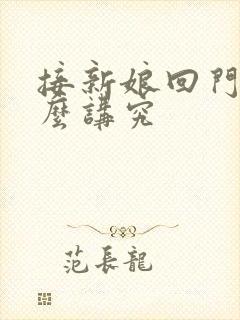 接新娘回門
麼講究
范長龍